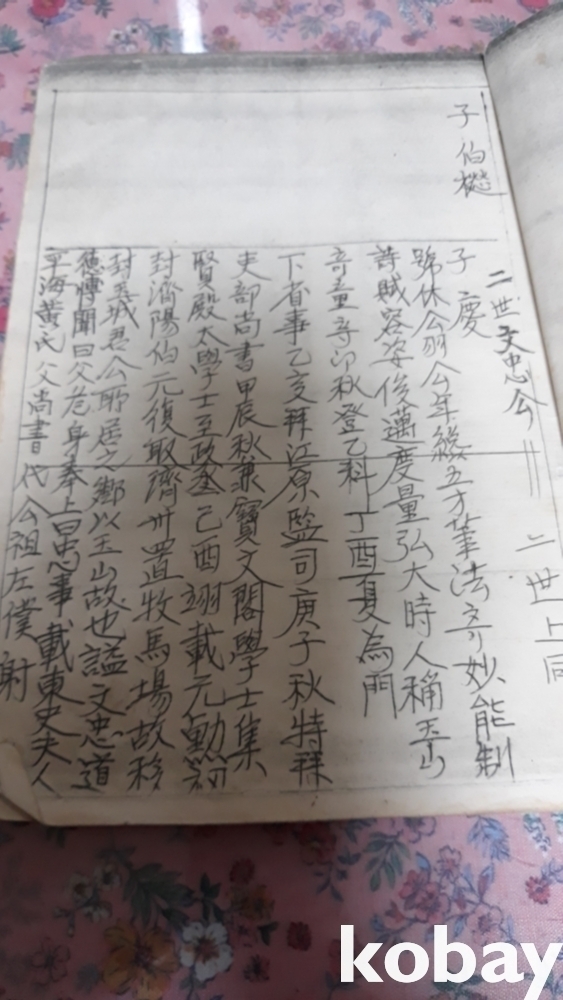 子 伯
二世文忠公
二世上同
子 慶
號休公羽公年纔五才筆法奇妙能制
詩賦容姿俊邁度量弘大時人稱玉山
奇童辛卯秋登乙科丁酉夏為門
下省事乙亥拜江原監司庚子秋特拜
吏部尚書甲辰秋兼寶文閣學士集
賢殿太學士至政堂己酉翊載元勳
封濟陽伯元復取濟州置牧馬場故移
封玉城君公所居之鄉以玉山故也諡文忠道
德博聞曰文危身奉上曰忠事載東史夫人
平海黃氏父尚書代公祖左僕射
kobay